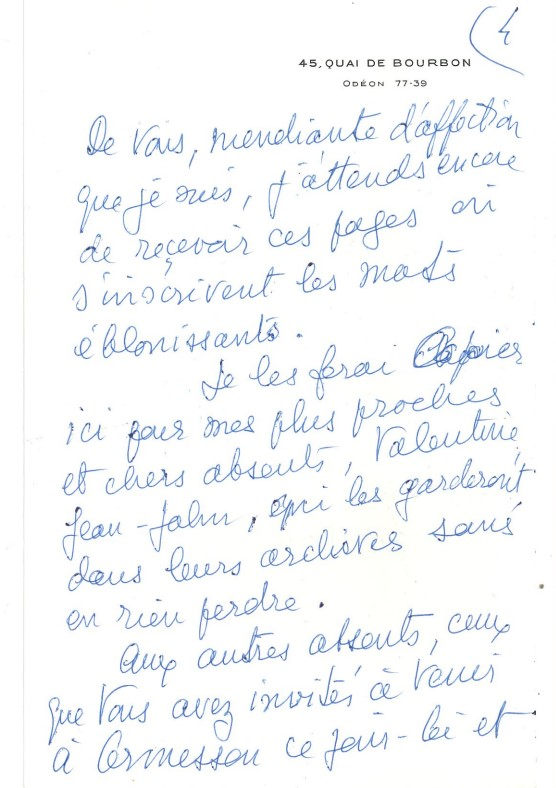 4
45, QUAI DE BOURBON
ODÉON 77-39
De Vous, mendiante d'affection
que je suis, j'attends encore
de reçevoir ces pages où
s'inscrivent les mots
éblouissants.
Je les ferai copier
ici pour mes plus proches
et chers absents, Valentine,
Jean-John, qui les garderont
dans leurs archives sans
en rien perdre.
Aux autres absents, ceux
que Vous avez invités à Venir
à Ormesson ce jour-là et